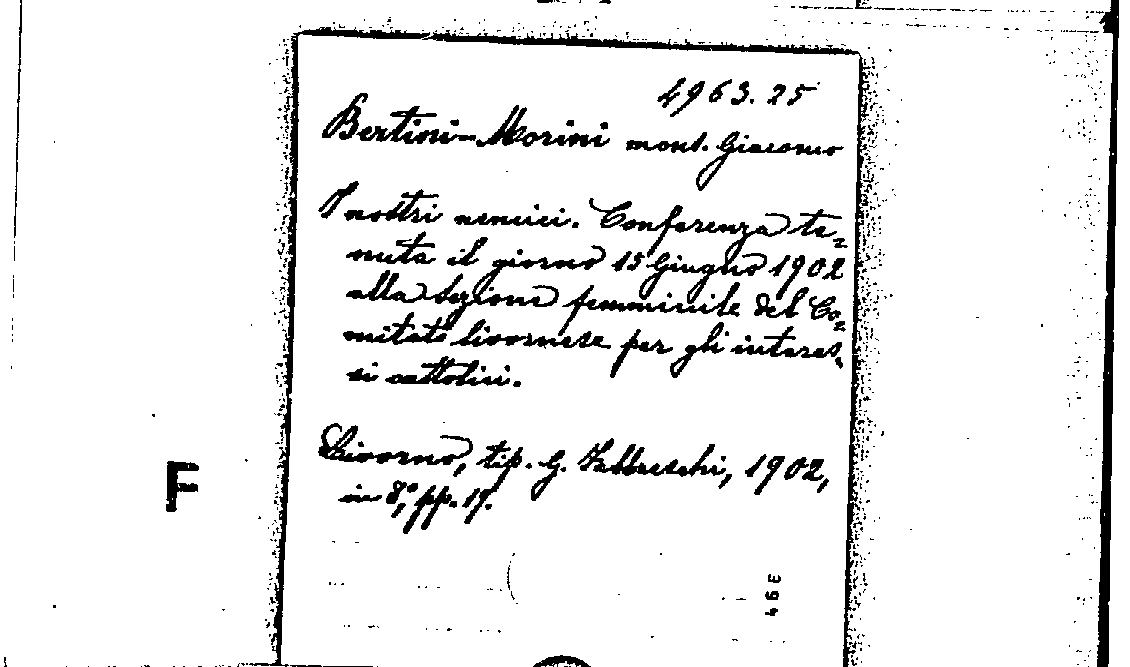 4963.25
Bertini-Morini mons. Giacomo
I nostri nemici. Conferenza te=
nuta il giorno 15 Giugno 1902
alla Sezione femminile del Co=
mitato livornese per gli interes=
si cattolici.
Livorno, tip. G. Fabbreschi, 1902,
in 8.°, pp. 19.
F